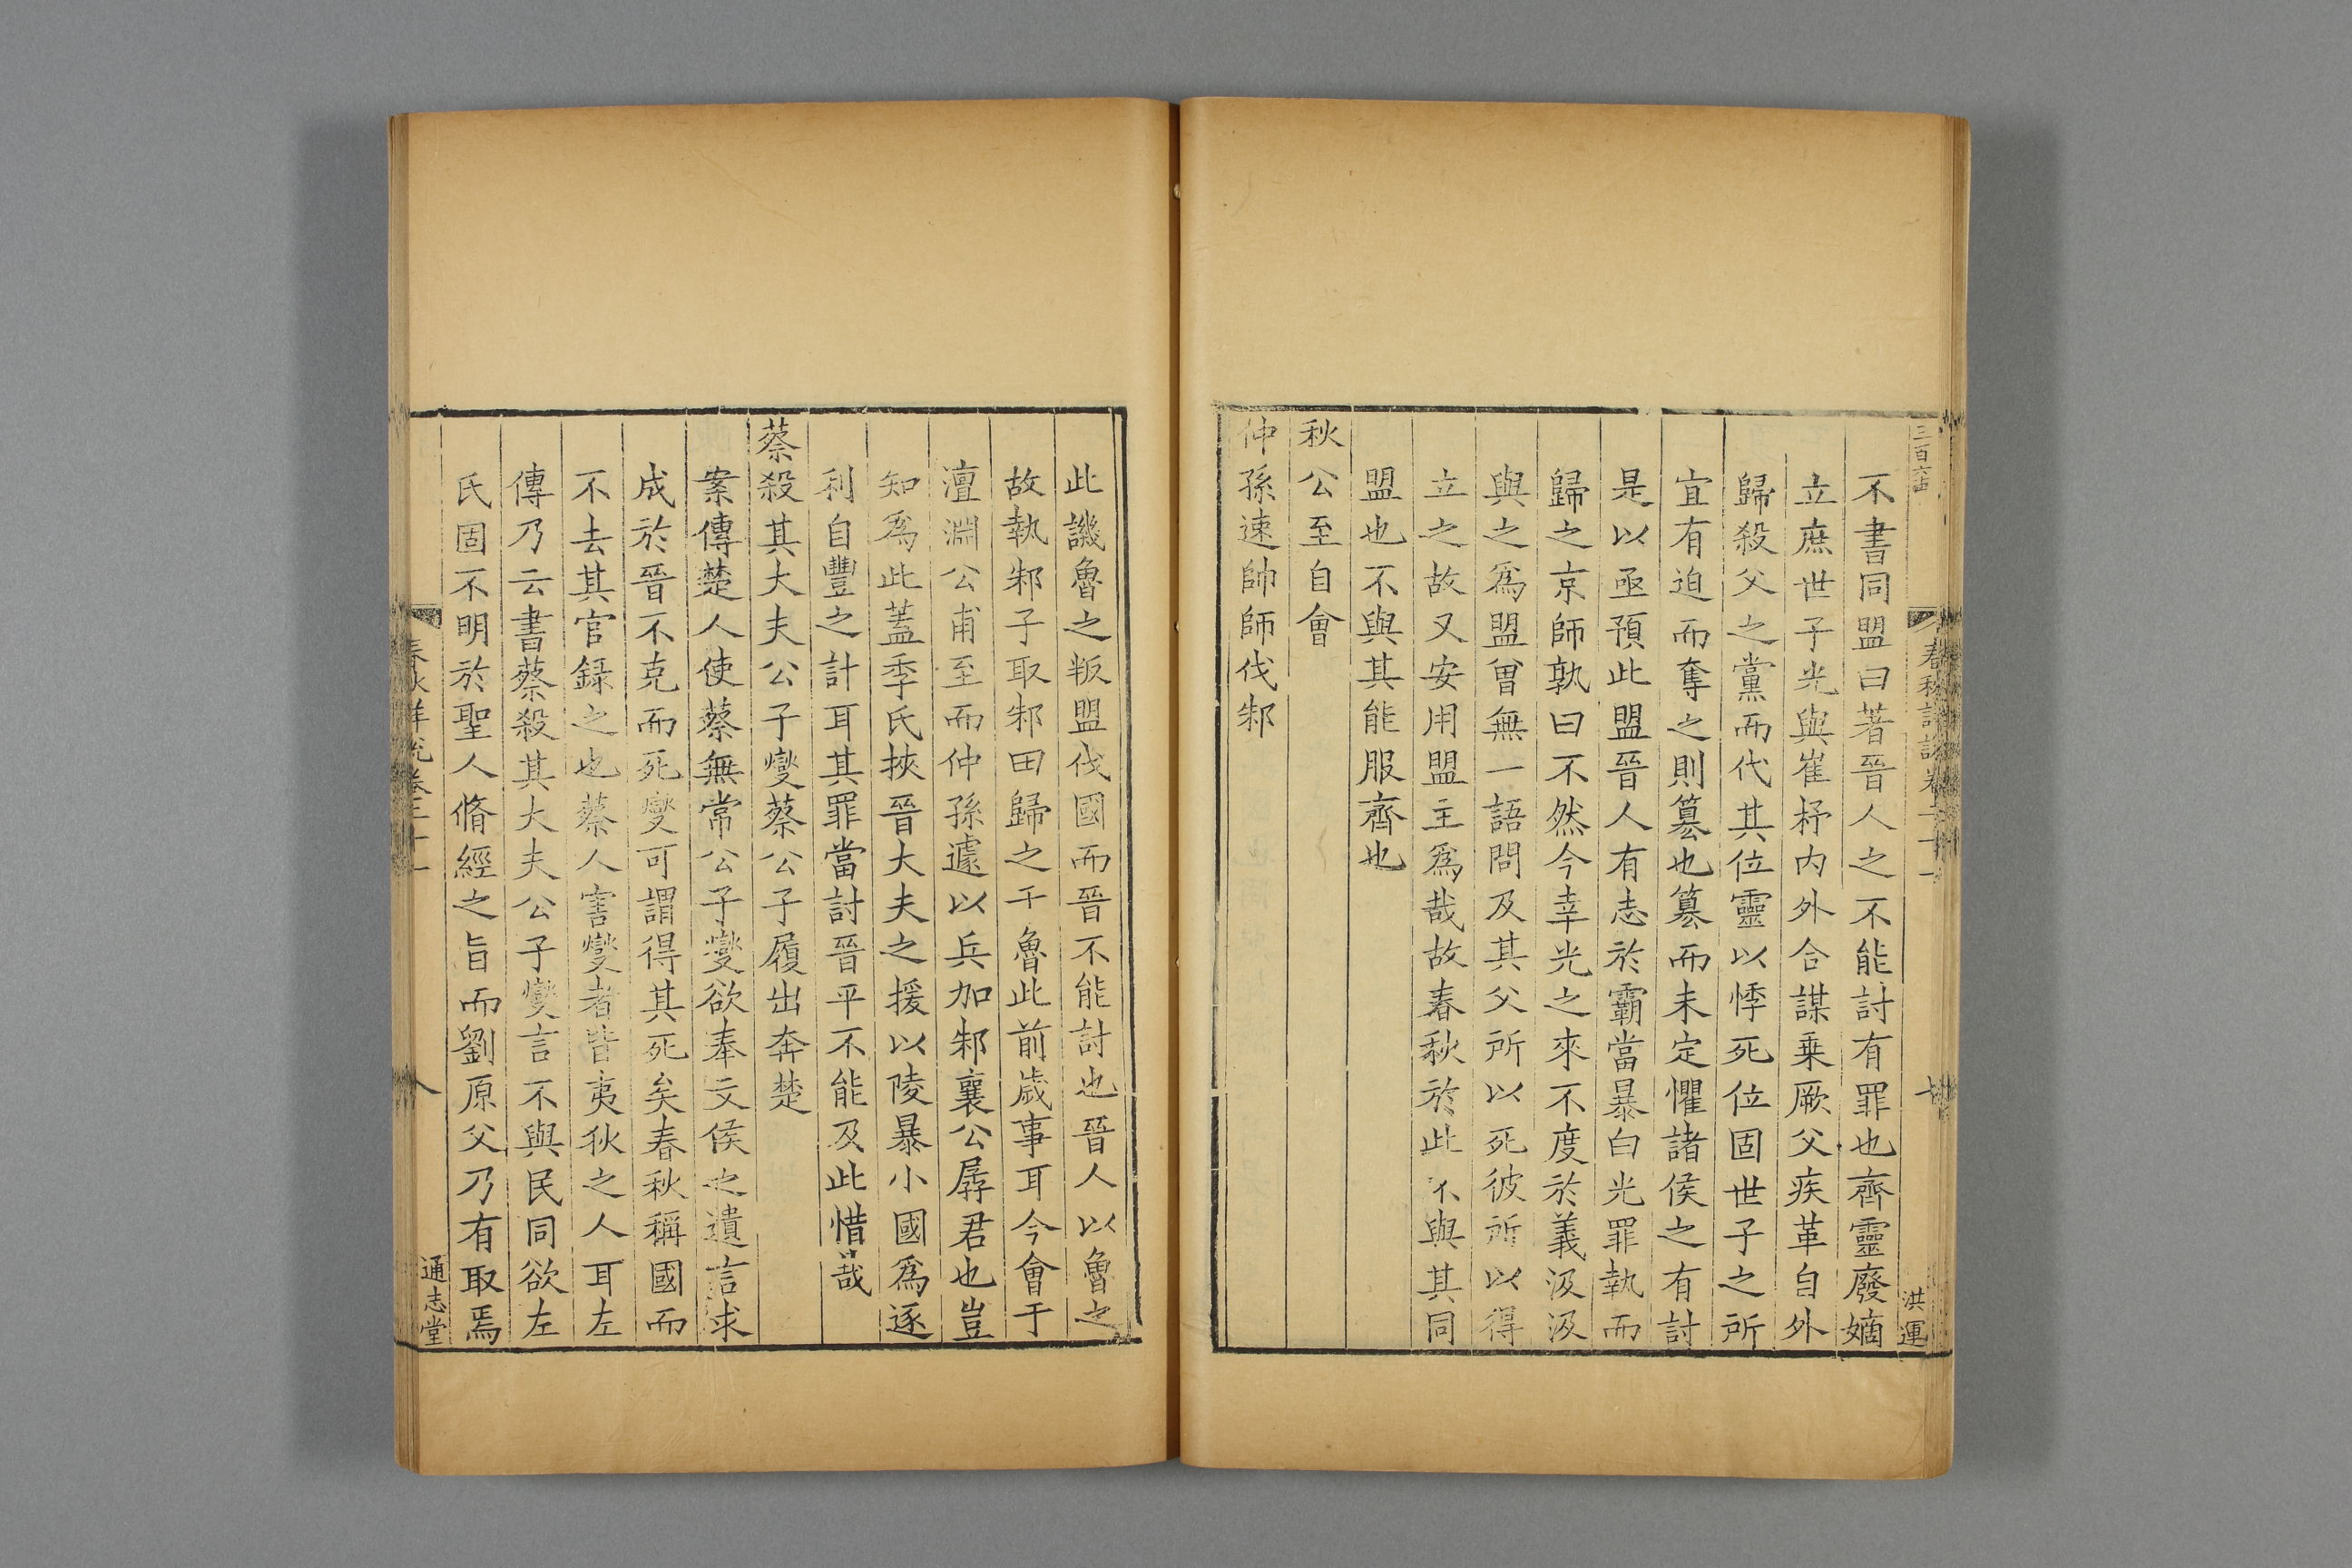 不書同盟曰著晉人之不能討有罪也齊靈廢嫡
立庶世子光與崔杼内外合謀乗厥父疾革自外
歸殺父之黨而代其位靈以悸死位固世子之所
宜有迫而奪之則篡也篡而未定懼諸侯之有討
是以亟預此盟晉人有志於霸當暴白光罪執而
歸之京師孰曰不然今幸光之來不度於義汲汲
與之爲盟曾無一語問及其父所以死彼所以得
立之故又安用盟主爲哉故春秋於此不與其同
盟也不與其能服齊也
秋公至自會
仲孫速帥師伐邾
此譏魯之叛盟伐國而晉不能討也晉人以魯之
故執邾子取邾田歸之于魯此前歲事耳今會于
澶淵公甫至而仲孫遽以兵加邾襄公孱君也豈
知爲此蓋季氏挾晉大夫之援以陵暴小國爲逐
利自豐之計耳其罪當討晉平不能及此惜哉
蔡殺其大夫公子燮蔡公子履出奔楚
案傳楚人使蔡無常公子燮欲奉文侯之遺言求
成於晉不克而死燮可謂得其死矣春秋稱國而
不去其官録之也蔡人害燮者皆夷狄之人耳左
傳乃云書蔡殺其大夫公子燮言不與民同欲左
氏固不明於聖人脩經之旨而劉原父乃有取焉
春秋詳說卷二十一
七
洪運
春秋詳說卷二十一
八
通志堂